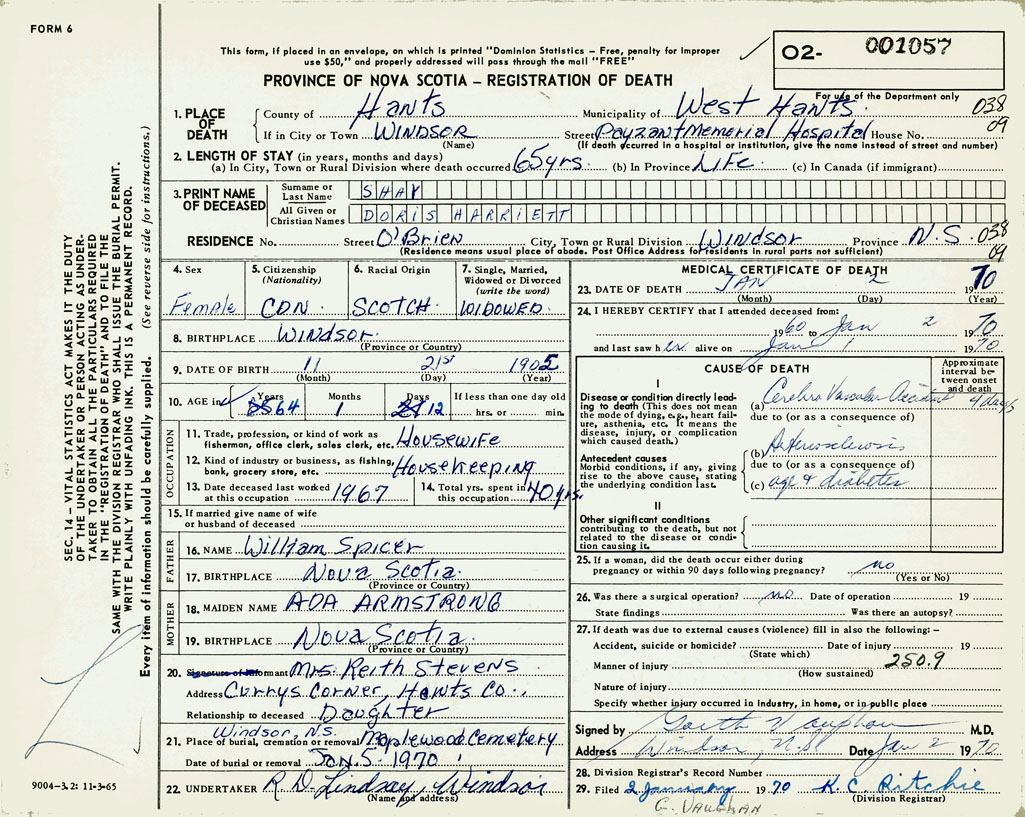 FORM 6
This form, if placed in an envelope, on which is printed "Dominion Statistics — Free, penalty for improper
use $50," and properly addressed will pass through the mail "FREE"
O2- 001057
PROVINCE OF NOVA SCOTIA — REGISTRATION OF DEATH
For use of the Department only
1. PLACE OF DEATH County of Hants Municipality of West Hants. 038
If in City or Town WINDSOR Street Payzant Memorial Hospital House No. 09
(Name) (If death occurred in a hospital or institution, give the name instead of street and number)
2. LENGTH OF STAY (in years, months and days)
(a) In City, Town or Rural Division where death occurred 65 yrs. (b) In Province LIFE. (c) In Canada (if immigrant)
3. PRINT NAME OF DECEASED Surname or Last Name SHAY
All Given or Christian Names DORIS HARRIETT
RESIDENCE No. Street O'Brien City, Town or Rural Division Windsor Province N.S. 038
(Residence means usual place of abode. Post Office Address for residents in rural parts not sufficient) 09
4. Sex Female
5. Citizenship (Nationality) CDN.
6. Racial Origin SCOTCH.
7. Single, Married, Widowed or Divorced (write the word) WIDOWED.
8. BIRTHPLACE Windsor.
(Province or Country)
9. DATE OF BIRTH 11 21st 1905
(Month) (Day) (Year)
10. AGE in Years 64 Months 1 Days 12 If less than one day old hrs. or min.
OCCUPATION
11. Trade, profession, or kind of work as fisherman, office clerk, sales clerk, etc. Housewife
12. Kind of industry or business, as fishing, bank, grocery store, etc. Housekeeping
13. Date deceased last worked at this occupation 1967
14. Total yrs. spent in this occupation 40 yrs.
15. If married give name of wife or husband of deceased
FATHER
16. NAME William Spicer
17. BIRTHPLACE Nova Scotia.
(Province or Country)
MOTHER
18. MAIDEN NAME ADA ARMSTRONG
19. BIRTHPLACE Nova Scotia.
(Province or Country)
20. Signature of Informant Mrs. Keith Stevens
Address Currys Corner, Hants Co.,
Relationship to deceased Daughter
Windsor, N.S.
21. Place of burial, cremation or removal Maplewood Cemetery
Date of burial or removal Jan. 5. 1970
22. UNDERTAKER R. D. Lindsay, Windsor
(Name and address)
MEDICAL CERTIFICATE OF DEATH
23. DATE OF DEATH JAN 2 1970
(Month) (Day) (Year)
24. I HEREBY CERTIFY that I attended deceased from:
1960 to Jan 2 1970
and last saw her alive on Jan 1 1970
CAUSE OF DEATH
Approximate interval between onset and death
I
Disease or condition directly leading to death (This does not mean the mode of dying, e.g., heart failure, asthenia, etc. It means the disease, injury, or complication which caused death.)
(a) Cerebro Vascular Accident 4 days
due to (or as a consequence of)
Antecedent causes
Morbid conditions, if any, giving rise to the above cause, stating the underlying condition last.
(b) Arteriosclerosis
due to (or as a consequence of)
(c) age & diabetes
II
Other significant conditions
contributing to the death, but not related to the disease or condition causing it.
25. If a woman, did the death occur either during pregnancy or within 90 days following pregnancy? no
(Yes or No)
26. Was there a surgical operation? no Date of operation 19
State findings Was there an autopsy?
27. If death was due to external causes (violence) fill in also the following: —
Accident, suicide or homicide? Date of injury 19
(State which)
Manner of injury 250.9
(How sustained)
Nature of injury
Specify whether injury occurred in industry, in home, or in public place
Signed by Garth Vaughan M.D.
Address Windsor, N.S. Date Jan 2 1970
28. Division Registrar's Record Number
29. Filed 2 January 1970 K. C. Ritchie
(Division Registrar)
G. VAUGHAN
SEC. 14 — VITAL STATISTICS ACT MAKES IT THE DUTY
OF THE UNDERTAKER OR PERSON ACTING AS UNDER-
TAKER TO OBTAIN ALL THE PARTICULARS REQUIRED
IN THE "REGISTRATION OF DEATH" AND TO FILE THE
SAME WITH THE DIVISION REGISTRAR WHO SHALL ISSUE THE BURIAL PERMIT.
WRITE PLAINLY WITH UNFADING INK. THIS IS A PERMANENT RECORD.
Every item of information should be carefully supplied. (See reverse side for instructions.)
9004-3.2: 11-3-65